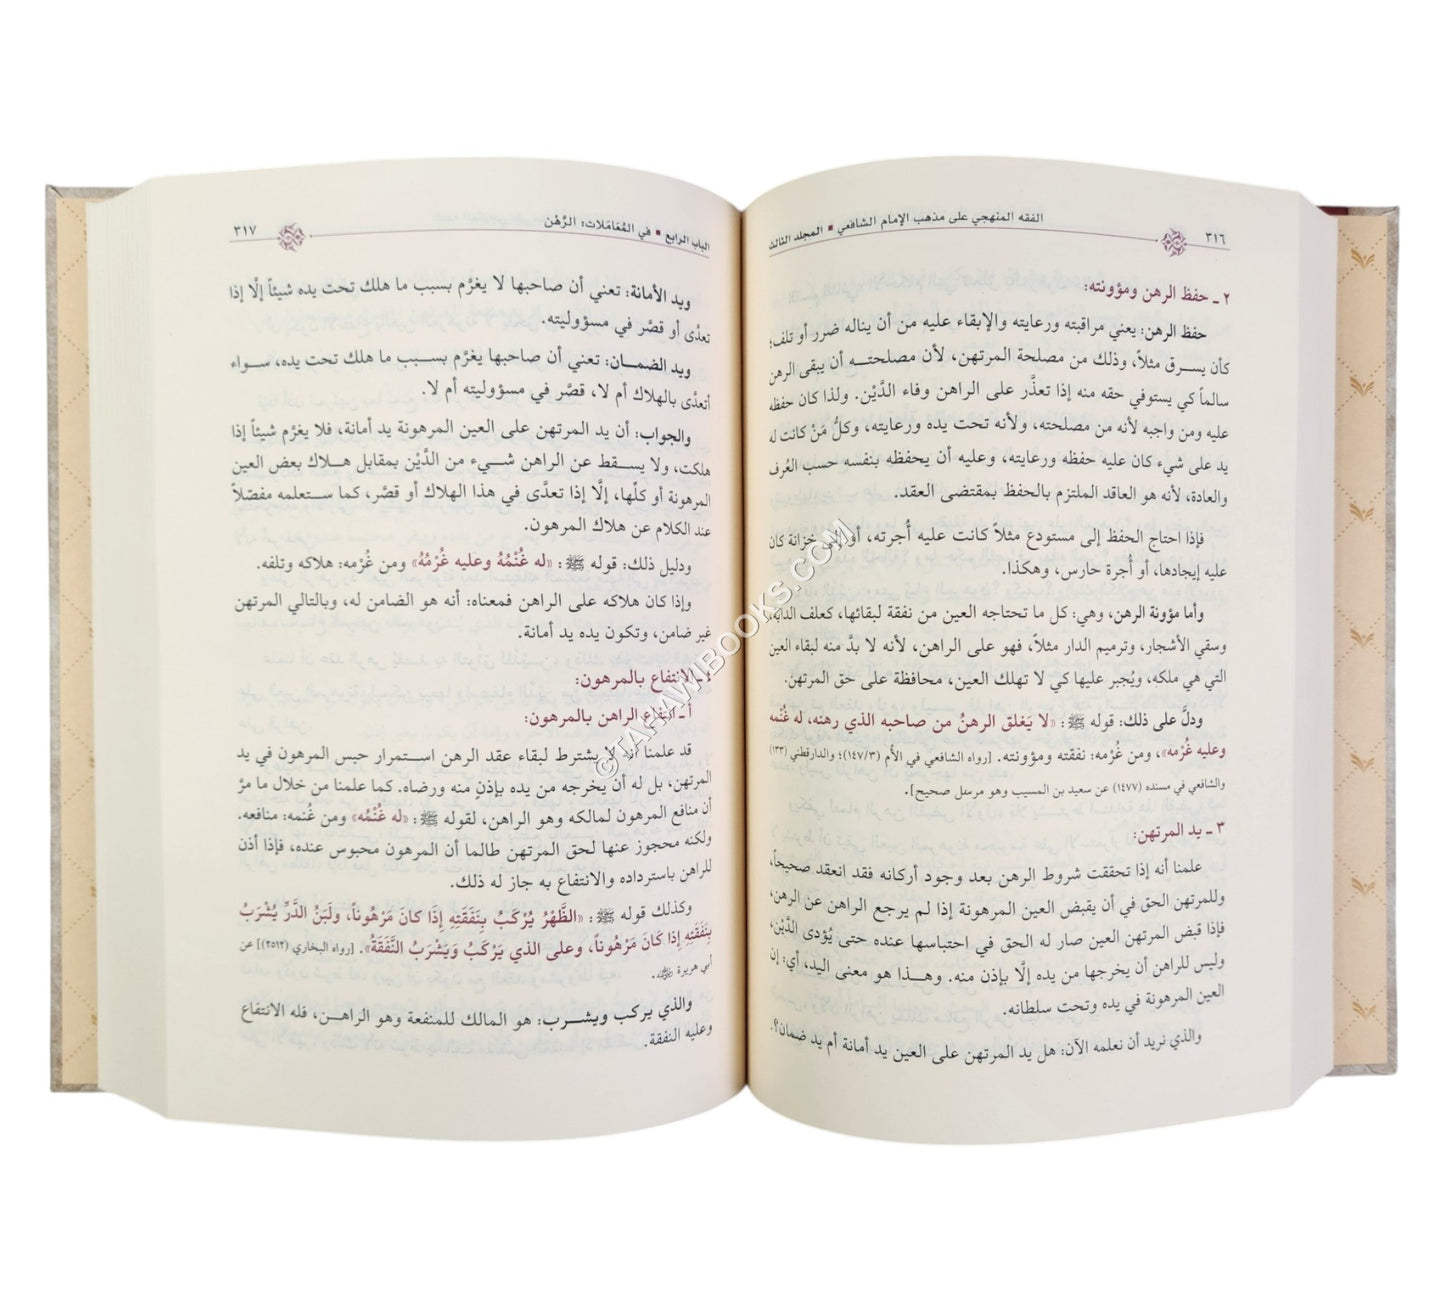 ٣١٦ الفقه المنهجي على مذهب الإمام الشافعي ▪ المجلد الثالث
٢ ـ حفظ الرهن ومؤونته:
حفظ الرهن: يعني مراقبته ورعايته والإبقاء عليه من أن يناله ضرر أو تلف؛
كأن يسرق مثلاً، وذلك من مصلحة المرتهن، لأن مصلحته أن يبقى الرهن
سالماً كي يستوفي حقه منه إذا تعذَّر على الراهن وفاء الدَّيْن. ولذا كان حفظه
عليه ومن واجبه لأنه من مصلحته، ولأنه تحت يده ورعايته، وكلُّ مَنْ كانت له
يد على شيء كان عليه حفظه ورعايته، وعليه أن يحفظه بنفسه حسب العُرف
والعادة، لأنه هو العاقد الملتزم بالحفظ بمقتضى العقد.
فإذا احتاج الحفظ إلى مستودع مثلاً كانت عليه أُجرته، أو إلى خزانة كان
عليه إيجادها، أو أُجرة حارس، وهكذا.
وأما مؤونة الرهن، وهي: كل ما تحتاجه العين من نفقة لبقائها، كعلف الدابة،
وسقي الأشجار، وترميم الدار مثلاً، فهو على الراهن، لأنه لا بدَّ منه لبقاء العين
التي هي ملكه، ويُجبر عليها كي لا تهلك العين، محافظة على حق المرتهن.
ودلَّ على ذلك: قوله ﷺ: «لا يَغلق الرهنُ من صاحبه الذي رهنه، له غُنْمه
وعليه غُرْمه»، ومن غُرْمه: نفقته ومؤونته. [رواه الشافعي في الأُم (١٤٧/٣)؛ والدارقطني (١٣٣)
والشافعي في مسنده (١٤٧٧) عن سعيد بن المسيب وهو مرسل صحيح].
٣ ـ يد المرتهن:
علمنا أنه إذا تحققت شروط الرهن بعد وجود أركانه فقد انعقد صحيحاً،
وللمرتهن الحق في أن يقبض العين المرهونة إذا لم يرجع الراهن عن الرهن،
فإذا قبض المرتهن العين صار له الحق في احتباسها عنده حتى يُؤدى الدَّيْن،
وليس للراهن أن يخرجها من يده إلَّا بإذن منه. وهذا هو معنى اليد، أي: إن
العين المرهونة في يده وتحت سلطانه.
والذي نريد أن نعلمه الآن: هل يد المرتهن على العين يد أمانة أم يد ضمان؟.
الباب الرابع ▪ في المُعَامَلات: الرَّهْن ٣١٧
ويد الأمانة: تعني أن صاحبها لا يغرَّم بسبب ما هلك تحت يده شيئاً إلَّا إذا
تعدَّى أو قصَّر في مسؤوليته.
ويد الضمان: تعني أن صاحبها يغرَّم بسبب ما هلك تحت يده، سواء
أتعدَّى بالهلاك أم لا، قصَّر في مسؤوليته أم لا.
والجواب: أن يد المرتهن على العين المرهونة يد أمانة، فلا يغرَّم شيئاً إذا
هلكت، ولا يسقط عن الراهن شيء من الدَّيْن بمقابل هلاك بعض العين
المرهونة أو كلّها، إلَّا إذا تعدَّى في هذا الهلاك أو قصَّر، كما ستعلمه مفصّلاً
عند الكلام عن هلاك المرهون.
ودليل ذلك: قوله ﷺ: «له غُنْمُهُ وعليه غُرْمُهُ» ومن غُرْمه: هلاكه وتلفه.
وإذا كان هلاكه على الراهن فمعناه: أنه هو الضامن له، وبالتالي المرتهن
غير ضامن، وتكون يده يد أمانة.
٤ ـ الانتفاع بالمرهون:
أ ـ انتفاع الراهن بالمرهون:
قد علمنا أنه لا يشترط لبقاء عقد الرهن استمرار حبس المرهون في يد
المرتهن، بل له أن يخرجه من يده بإذنٍ منه ورضاه. كما علمنا من خلال ما مرَّ
أن منافع المرهون لمالكه وهو الراهن، لقوله ﷺ: «له غُنْمُه» ومن غُنمه: منافعه.
ولكنه محجوز عنها لحق المرتهن طالما أن المرهون محبوس عنده، فإذا أذن
للراهن باسترداده والانتفاع به جاز له ذلك.
وكذلك قوله ﷺ: «الظَّهْرُ يُرْكَبُ بِنَفَقَتِهِ إِذَا كانَ مَرْهُوناً، ولَبَنُ الدَّرِّ يُشْرَبُ
بِنَفَقَتِهِ إذا كَانَ مَرْهُوناً، وعلى الذي يَرْكَبُ وَيَشْرَبُ النَّفَقَةُ». [رواه البخاري (٢٥١٢)] عن
أبي هريرة ﷺ.
والذي يركب ويشرب: هو المالك للمنفعة وهو الراهن، فله الانتفاع
وعليه النفقة.
© TAHAWIBOOKS.COM